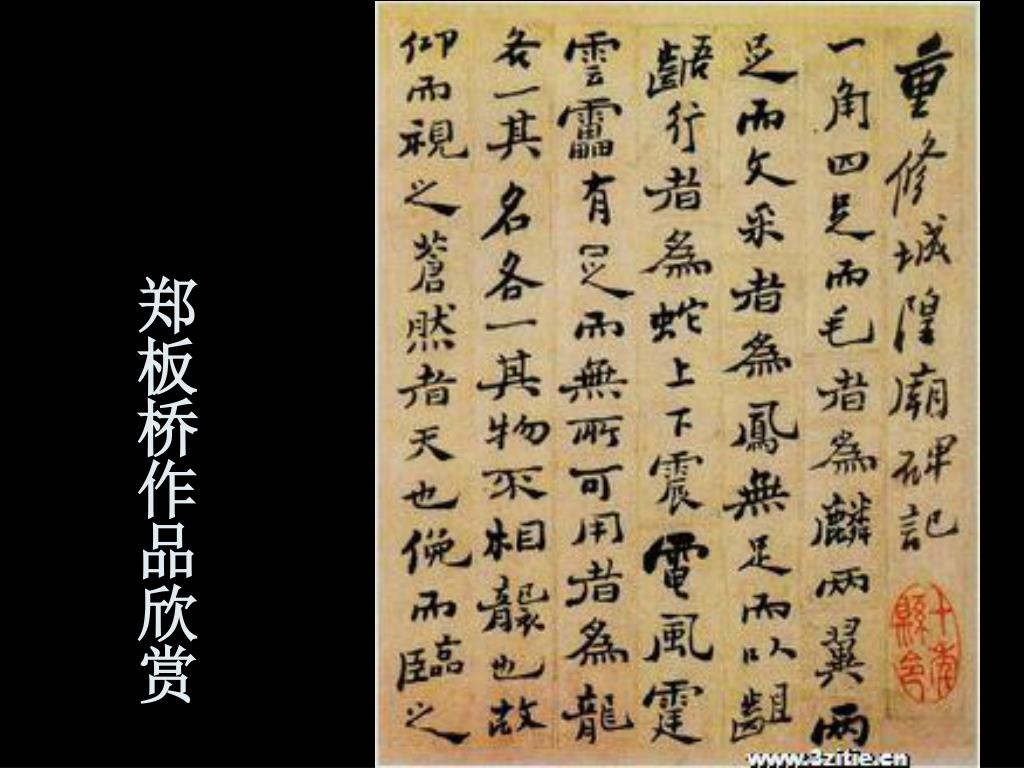 郑板桥作品欣赏
重修城隍廟碑記
一角四足而毛者為麟兩翼兩
足而文采者為鳳無足而以齟
齬行者為蛇上下震電風霆
雲靁有足而無所可用者為龍
各一其名各一其物不相襲也故
仰而視之蒼然者天也俛而臨之
十年縣令
www.3zitie.cn